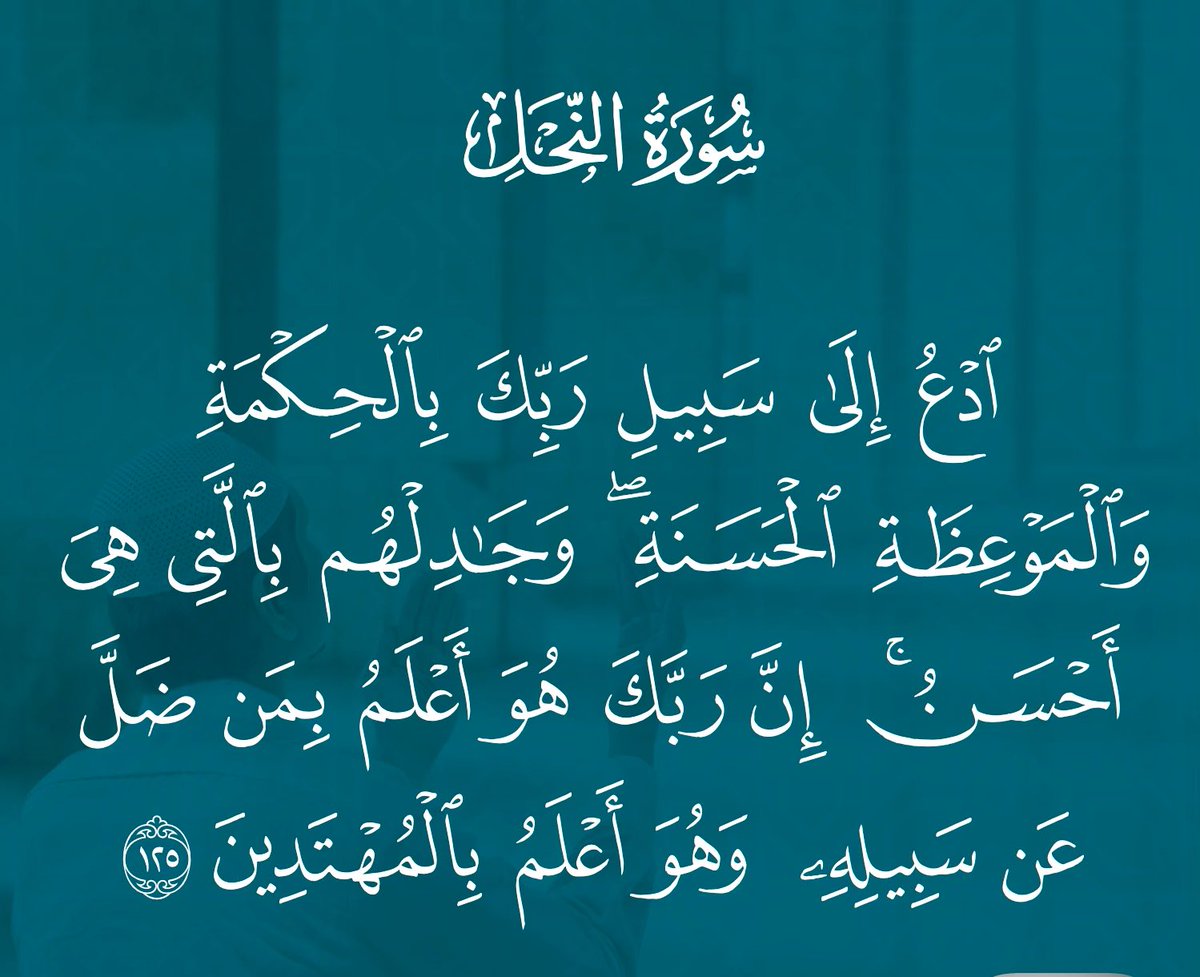 سُورَةُ النَّحۡلِ
ٱدۡعُ إِلَىٰ سَبِيلِ رَبِّكَ بِٱلۡحِكۡمَةِ
وَٱلۡمَوۡعِظَةِ ٱلۡحَسَنَةِۖ وَجَٰدِلۡهُم بِٱلَّتِي هِيَ
أَحۡسَنُۚ إِنَّ رَبَّكَ هُوَ أَعۡلَمُ بِمَن ضَلَّ
عَن سَبِيلِهِۦ وَهُوَ أَعۡلَمُ بِٱلۡمُهۡتَدِينَ ١٢٥